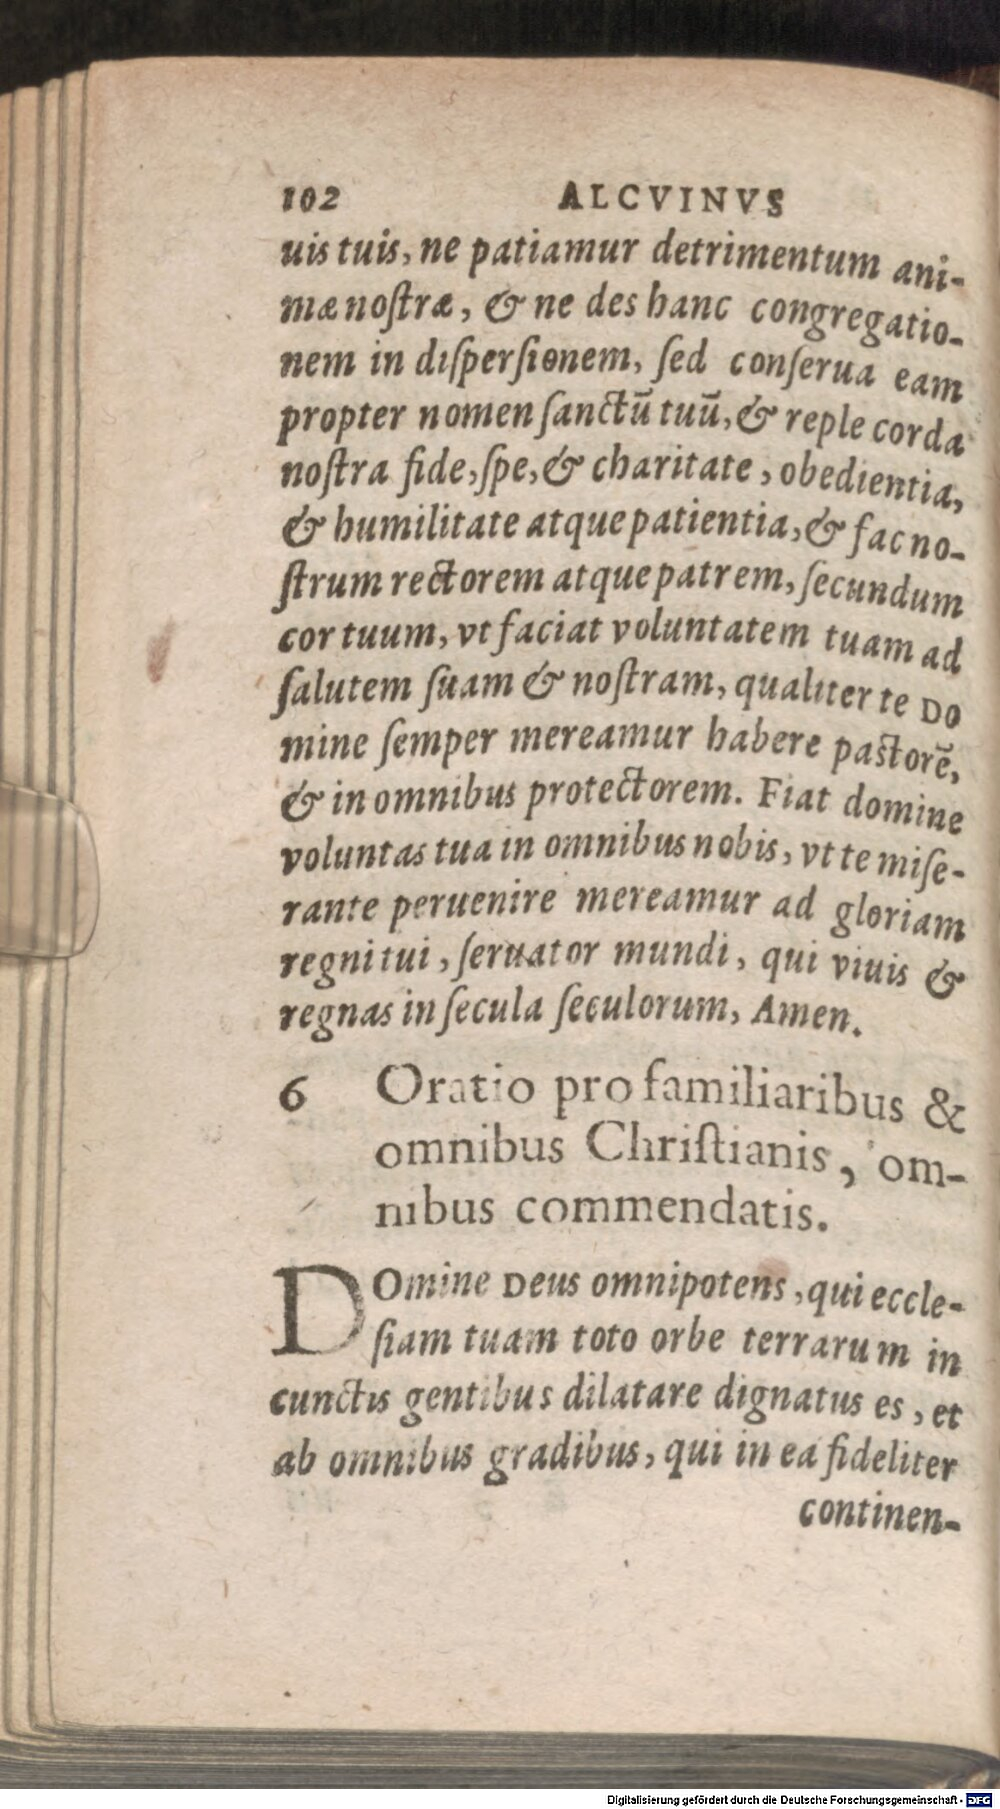 102 ALCVINVS
uis tuis, ne patiamur detrimentum ani-
mæ noſtræ, & ne des hanc congregatio-
nem in diſperſionem, ſed conſerua eam
propter nomen ſanctū tuū, & reple corda
noſtra fide, ſpe, & charitate, obedientia,
& humilitate atque patientia, & fac no-
ſtrum rectorem atque patrem, ſecundum
cor tuum, vt faciat voluntatem tuam ad
ſalutem ſuam & noſtram, qualiter te DO
mine ſemper mereamur habere paſtorē,
& in omnibus protectorem. Fiat domine
voluntas tua in omnibus nobis, vt te miſe-
rante peruenire mereamur ad gloriam
regni tui, ſeruator mundi, qui viuis &
regnas in ſecula ſeculorum, Amen.
6 Oratio pro familiaribus &
omnibus Chriſtianis, om-
nibus commendatis.
DOmine Deus omnipotens, qui eccle-
ſiam tuam toto orbe terrarum in
cunctis gentibus dilatare dignatus es, et
ab omnibus gradibus, qui in ea fideliter
continen-
Digitalisierung gefördert durch die Deutsche Forschungsgemeinschaft - DFG